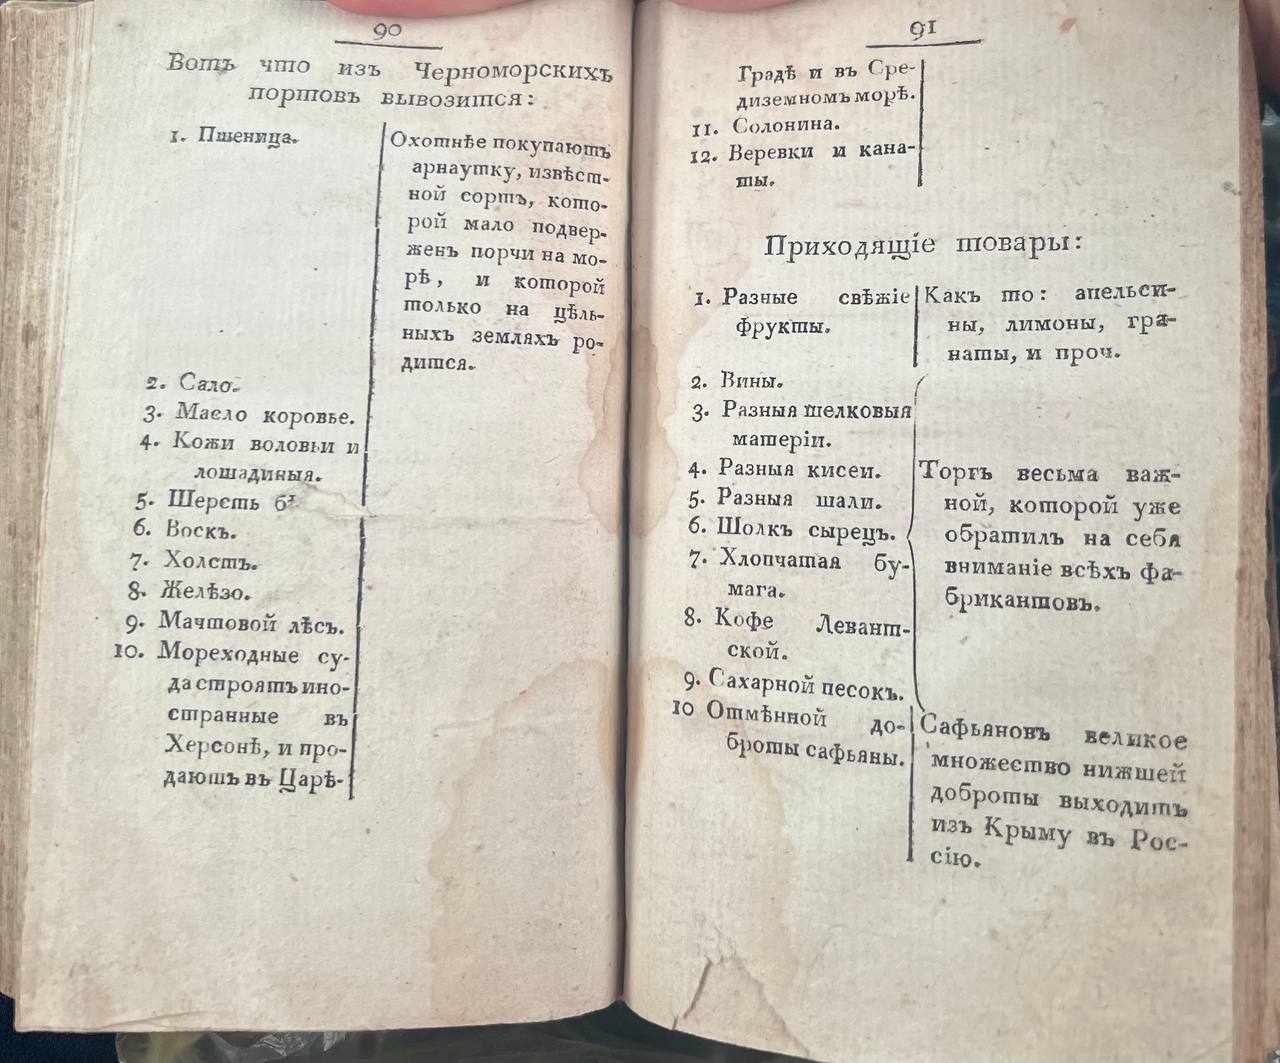 90
Вотъ что изъ Черноморскихъ
портовъ вывозится:
1. Пшеница.
Охотнѣе покупаютъ
арнаутку, извѣст-
ной сортъ, кото-
рой мало подвер-
женъ порчи на мо-
рѣ, и которой
только на цѣль-
ныхъ земляхъ ро-
дится.
2. Сало.
3. Масло коровье.
4. Кожи воловьи и
лошадиныя.
5. Шерсть
6. Воскъ.
7. Холстъ.
8. Желѣзо.
9. Мачтовой лѣсъ.
10. Мореходные су-
да строятъ ино-
странные въ
Херсонѣ, и про-
даютъ въ Царѣ-
91
Градѣ и въ Сре-
диземномъ морѣ.
11. Солонина.
12. Веревки и кана-
ты.
Приходящіе товары:
1. Разные свѣжіе
фрукты.
Какъ то: апельси-
ны, лимоны, гра-
наты, и проч.
2. Вины.
3. Разныя шелковыя
матеріи.
4. Разныя кисеи.
5. Разныя шали.
6. Шолкъ сырецъ.
7. Хлопчатая бу-
мага.
8. Кофе Левант-
ской.
9. Сахарной песокъ.
Торгъ весьма важ-
ной, которой уже
обратилъ на себя
вниманіе всѣхъ фа-
брикантовъ.
10 Отмѣнной до-
броты сафьяны.
Сафьяновъ великое
множество нижшей
доброты выходитъ
изъ Крыму въ Рос-
сію.